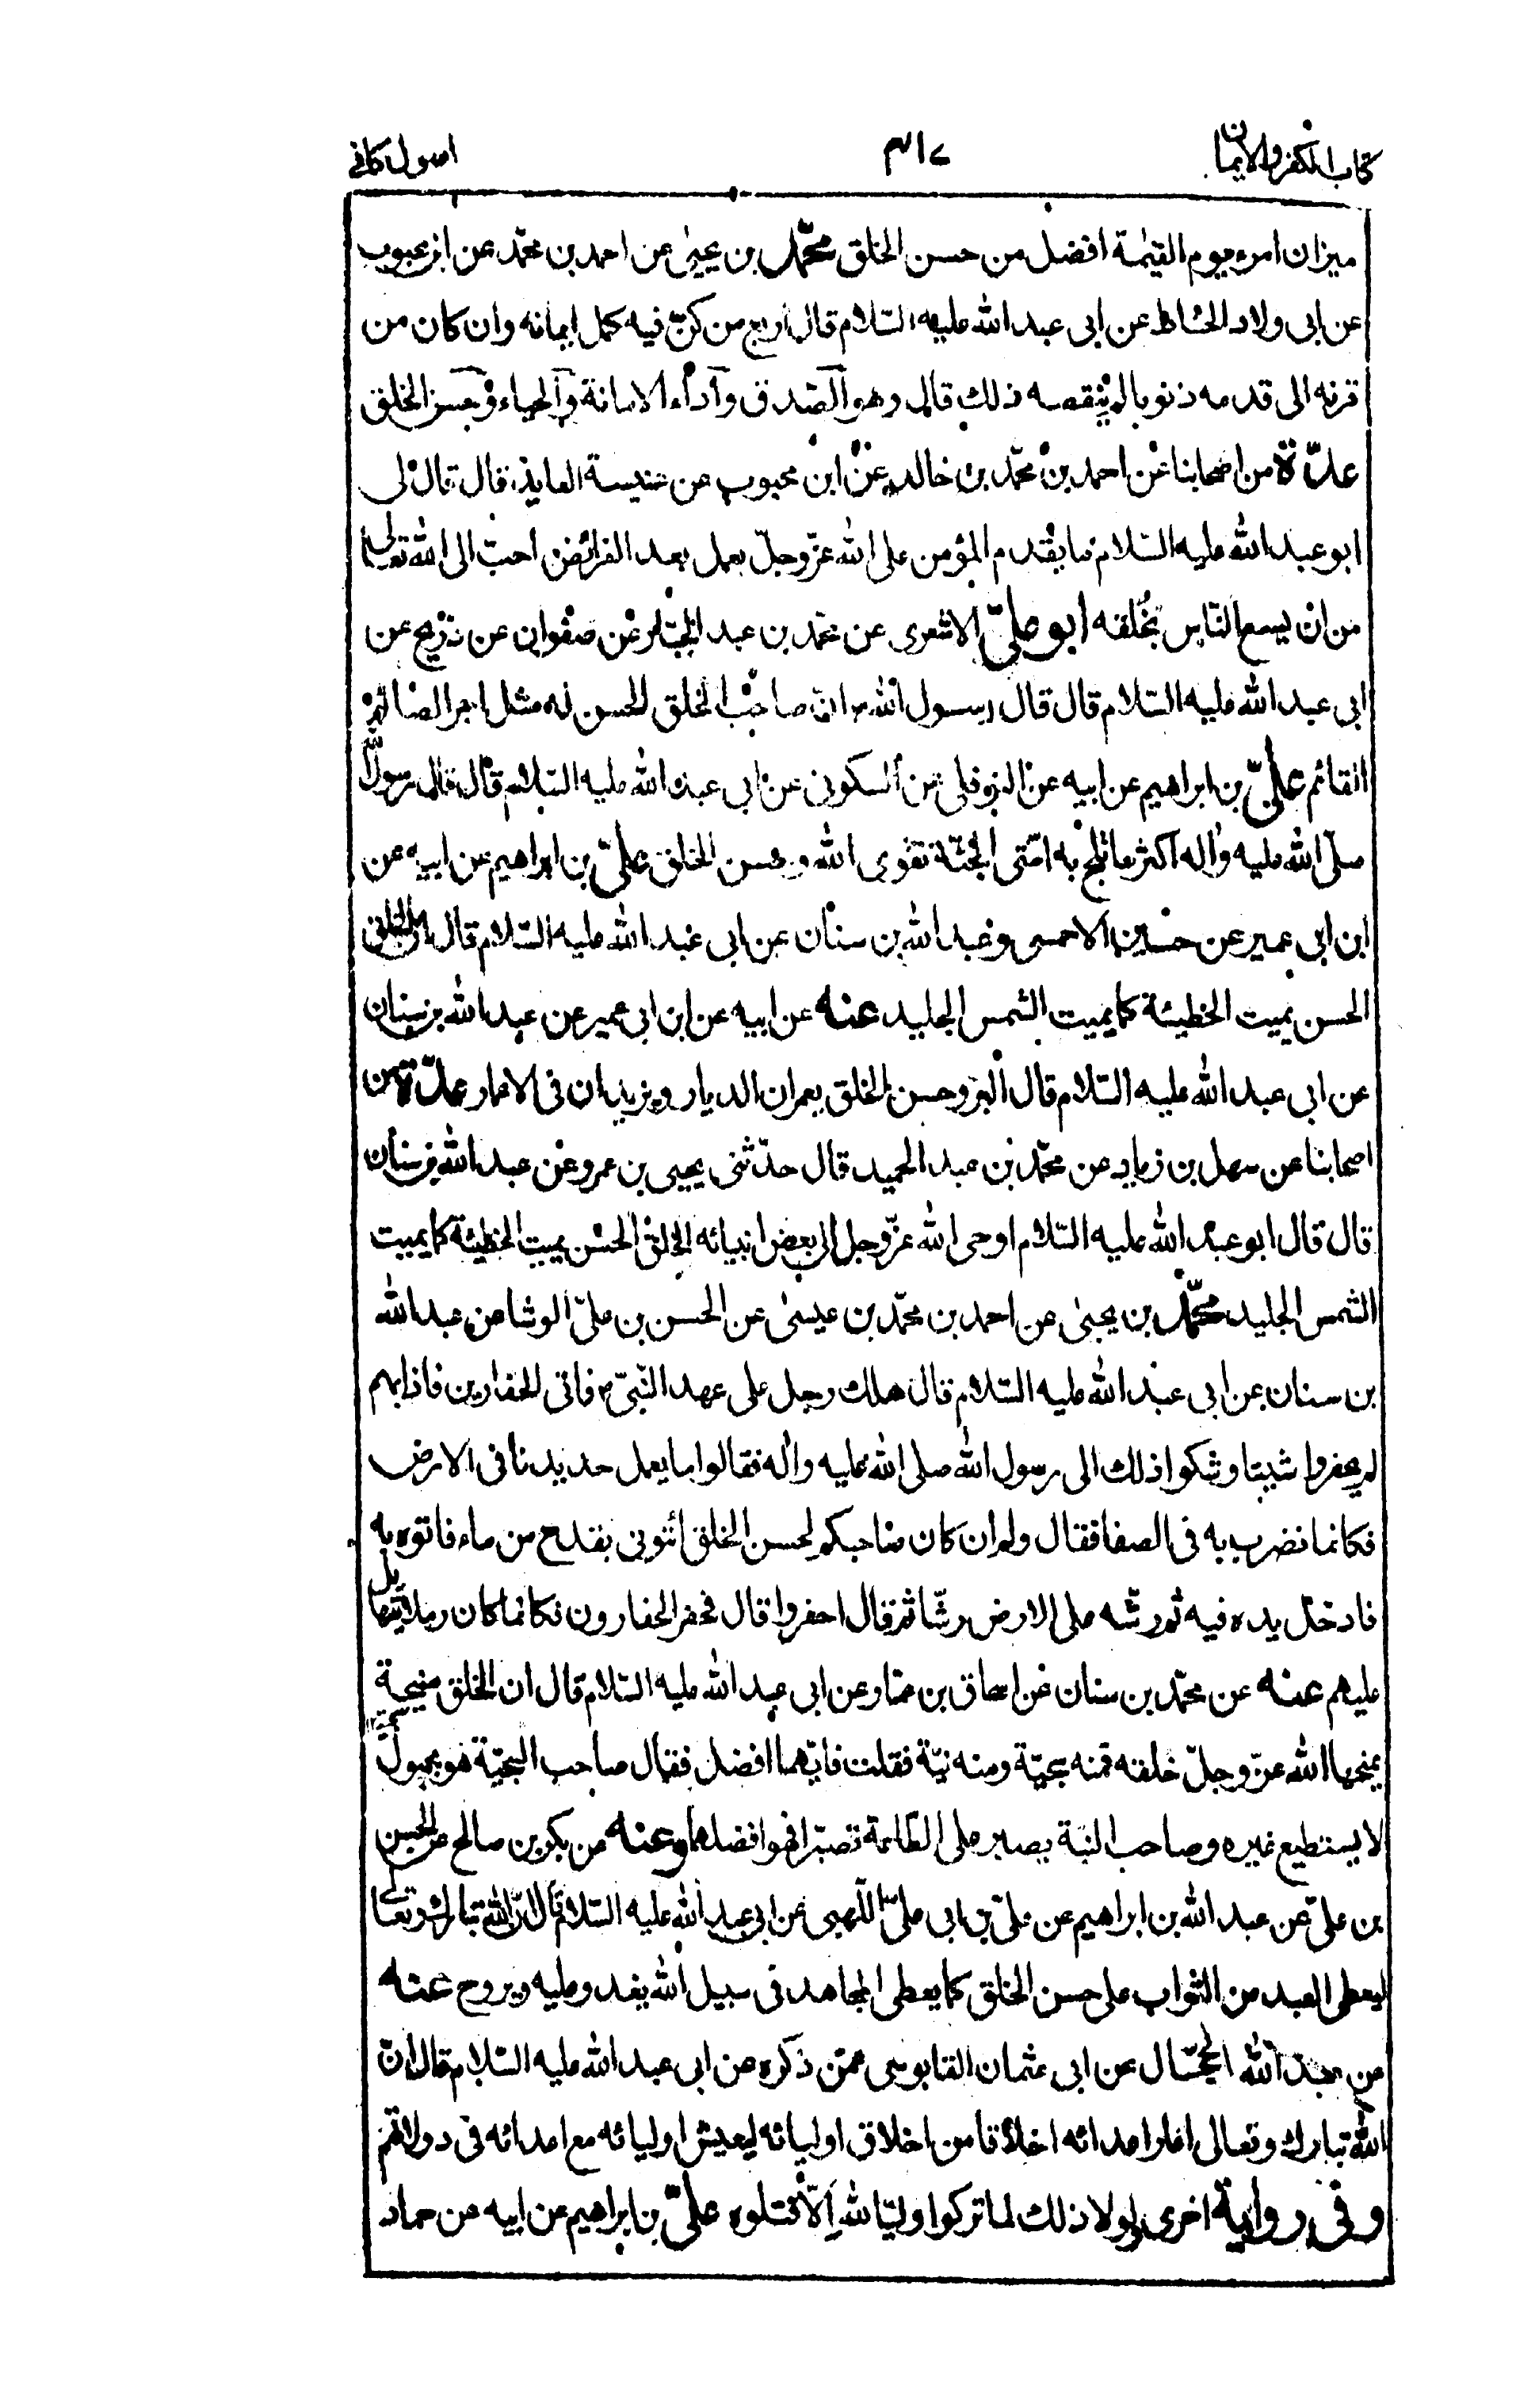 كتاب الكفر والايمان
٤١٧
اصول كافى
ميزان امرء يوم القيٰمة افضل من حسن الخلق محمّد بن يحيىٰ عن احمد بن محمّد عن ابن محبوب
عن ابى ولاد الحناط عن ابى عبد الله عليه السّلام قال اربع من كنّ فيه كمل ايمانه وان كان من
قرنه الى قدمه ذنوبا لم ينقصه ذلك قال وهو الصّدق وأداء الامانة والحياء وحسن الخلق
عدّة من اصحابنا عن احمد بن محمّد بن خالد عن ابن محبوب عن عنبسة العابد قال قال لى
ابو عبد الله عليه السّلام ما يقدم المؤمن على الله عزّ وجلّ بعمل بعد الفرائض احبّ الى الله تعالى
من ان يسع النّاس بخُلقه ابو علىّ الاشعرى عن محمّد بن عبد الجبّار عن صفوان عن ذريح عن
ابى عبد الله عليه السّلام قال قال رسول الله ص انّ صاحب الخلق الحسن له مثل اجر الصائم
القائم علىّ بن ابراهيم عن ابيه عن النوفلى عن السكونى عن ابى عبد الله عليه السّلام قال قال رسول الله
صلّى الله عليه وآله اكثر ما تلج به امّتى الجنّة تقوى الله وحسن الخلق علىّ بن ابراهيم عن ابيه عن
ابن ابى عمير عن حسين الاحمسى وعبد الله بن سنان عن ابى عبد الله عليه السّلام قال انّ الخلق
الحسن يميت الخطيئة كما يميت الشمس الجليد عنه عن ابيه عن ابن ابى عمير عن عبد الله بن سنان
عن ابى عبد الله عليه السّلام قال البرّ وحسن الخلق يعمران الديار ويزيدان فى الاعمار عدّة من
اصحابنا عن سهل بن زياد عن محمّد بن عبد الحميد قال حدّثنى يحيى بن عمرو عن عبد الله بن سنان
قال قال ابو عبد الله عليه السّلام اوحى الله عزّ وجل الى بعض انبيائه الخلق الحسن يميت الخطيئة كما يميت
الشمس الجليد محمّد بن يحيىٰ عن احمد بن محمّد بن عيسىٰ عن الحسن بن علىّ الوشا عن عبد الله
بن سنان عن ابى عبد الله عليه السّلام قال هلك رجل على عهد النّبىّ ص فاتى الحفارين فاذا بهم
لم يحفروا شيئا وشكوا ذلك الى رسول الله صلى الله عليه وآله فقالوا ما يعمل حديدنا فى الارض
فكانما نضرب به فى الصفا فقال ولم ان كان صاحبكم لحسن الخلق ائتونى بقدح من ماء فاتوه به
فادخل يده فيه ثم رشّه على الارض رشّا ثم قال احفروا قال فحفر الحفارون فكانما كان رملا يتهايل
عليهم عنه عن محمّد بن سنان عن اسحاق بن عمّار عن ابى عبد الله عليه السّلام قال ان الخلق منيحة
يمنحها الله عزّ وجلّ خلقه فمنه سجيّة ومنه نيّة فقلت فايّهما افضل فقال صاحب السجيّة هو مجبول
لا يستطيع غيره وصاحب النيّة يصبر على الطّاعة تصبّرا فهو افضلهما وعنه عن بكر بن صالح عن الحسن
بن علىّ عن عبد الله بن ابراهيم عن علىّ بن ابى علىّ اللّهبى عن ابى عبد الله عليه السّلام قال انّ الله تبارك وتعالى
ليعطى العبد من الثواب على حسن الخلق كما يعطى المجاهد فى سبيل الله يغدو عليه ويروح عنه
عن عبد الله الحجّال عن ابى عثمان القابوسى عمّن ذكره عن ابى عبد الله عليه السّلام قال انّ
الله تبارك وتعالى اعار اعدائه اخلاقا من اخلاق اوليائه ليعيش اوليائه مع اعدائه فى دولاتهم
وفى رواية اخرى لولا ذلك لما تركوا وليّا لله الّا قتلوه علىّ بن ابراهيم عن ابيه عن حماد